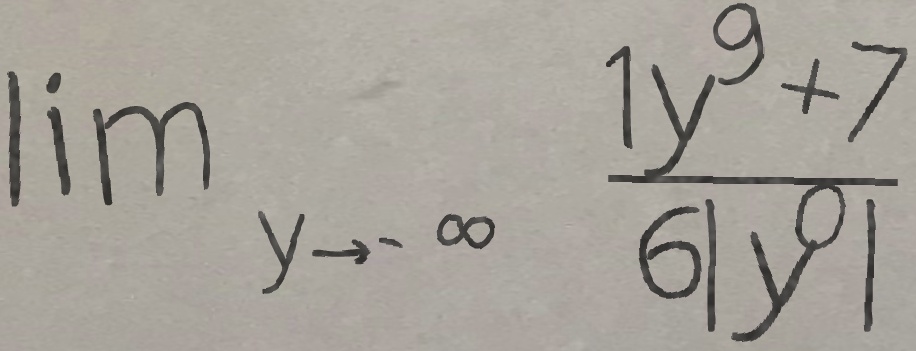 \lim_{y \to -\infty} \frac{1y^9+7}{6|y^0|}